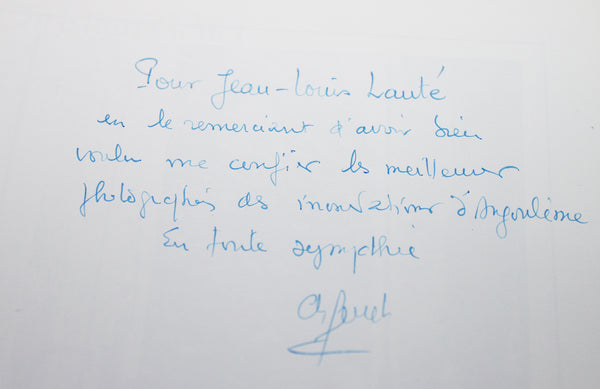 Pour Jean-Louis Lauté
en le remerciant d'avoir bien
voulu me confier les meilleures
photographies des inondations d'Angoulême
En toute sympathie